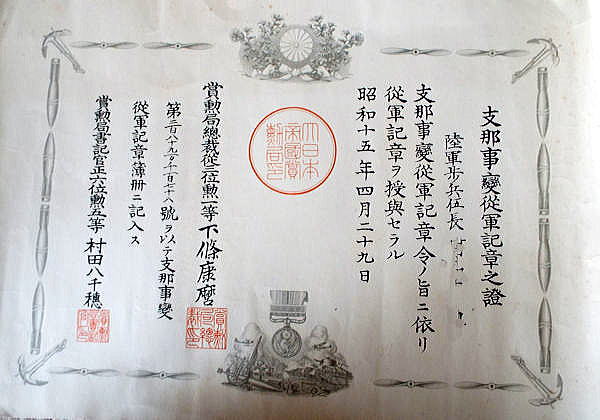 支那事變從軍記章之證
陸軍歩兵伍長
支那事變從軍記章令ノ旨ニ依リ
從軍記章ヲ授與セラル
昭和十五年四月二十九日
大日本帝國賞勲局印
賞勲局總裁從三位勲一等下條康麿
第 號ヲ以テ支那事變
從軍記章簿册ニ記入ス
賞勲局書記官正六位勲五等村田八千穗